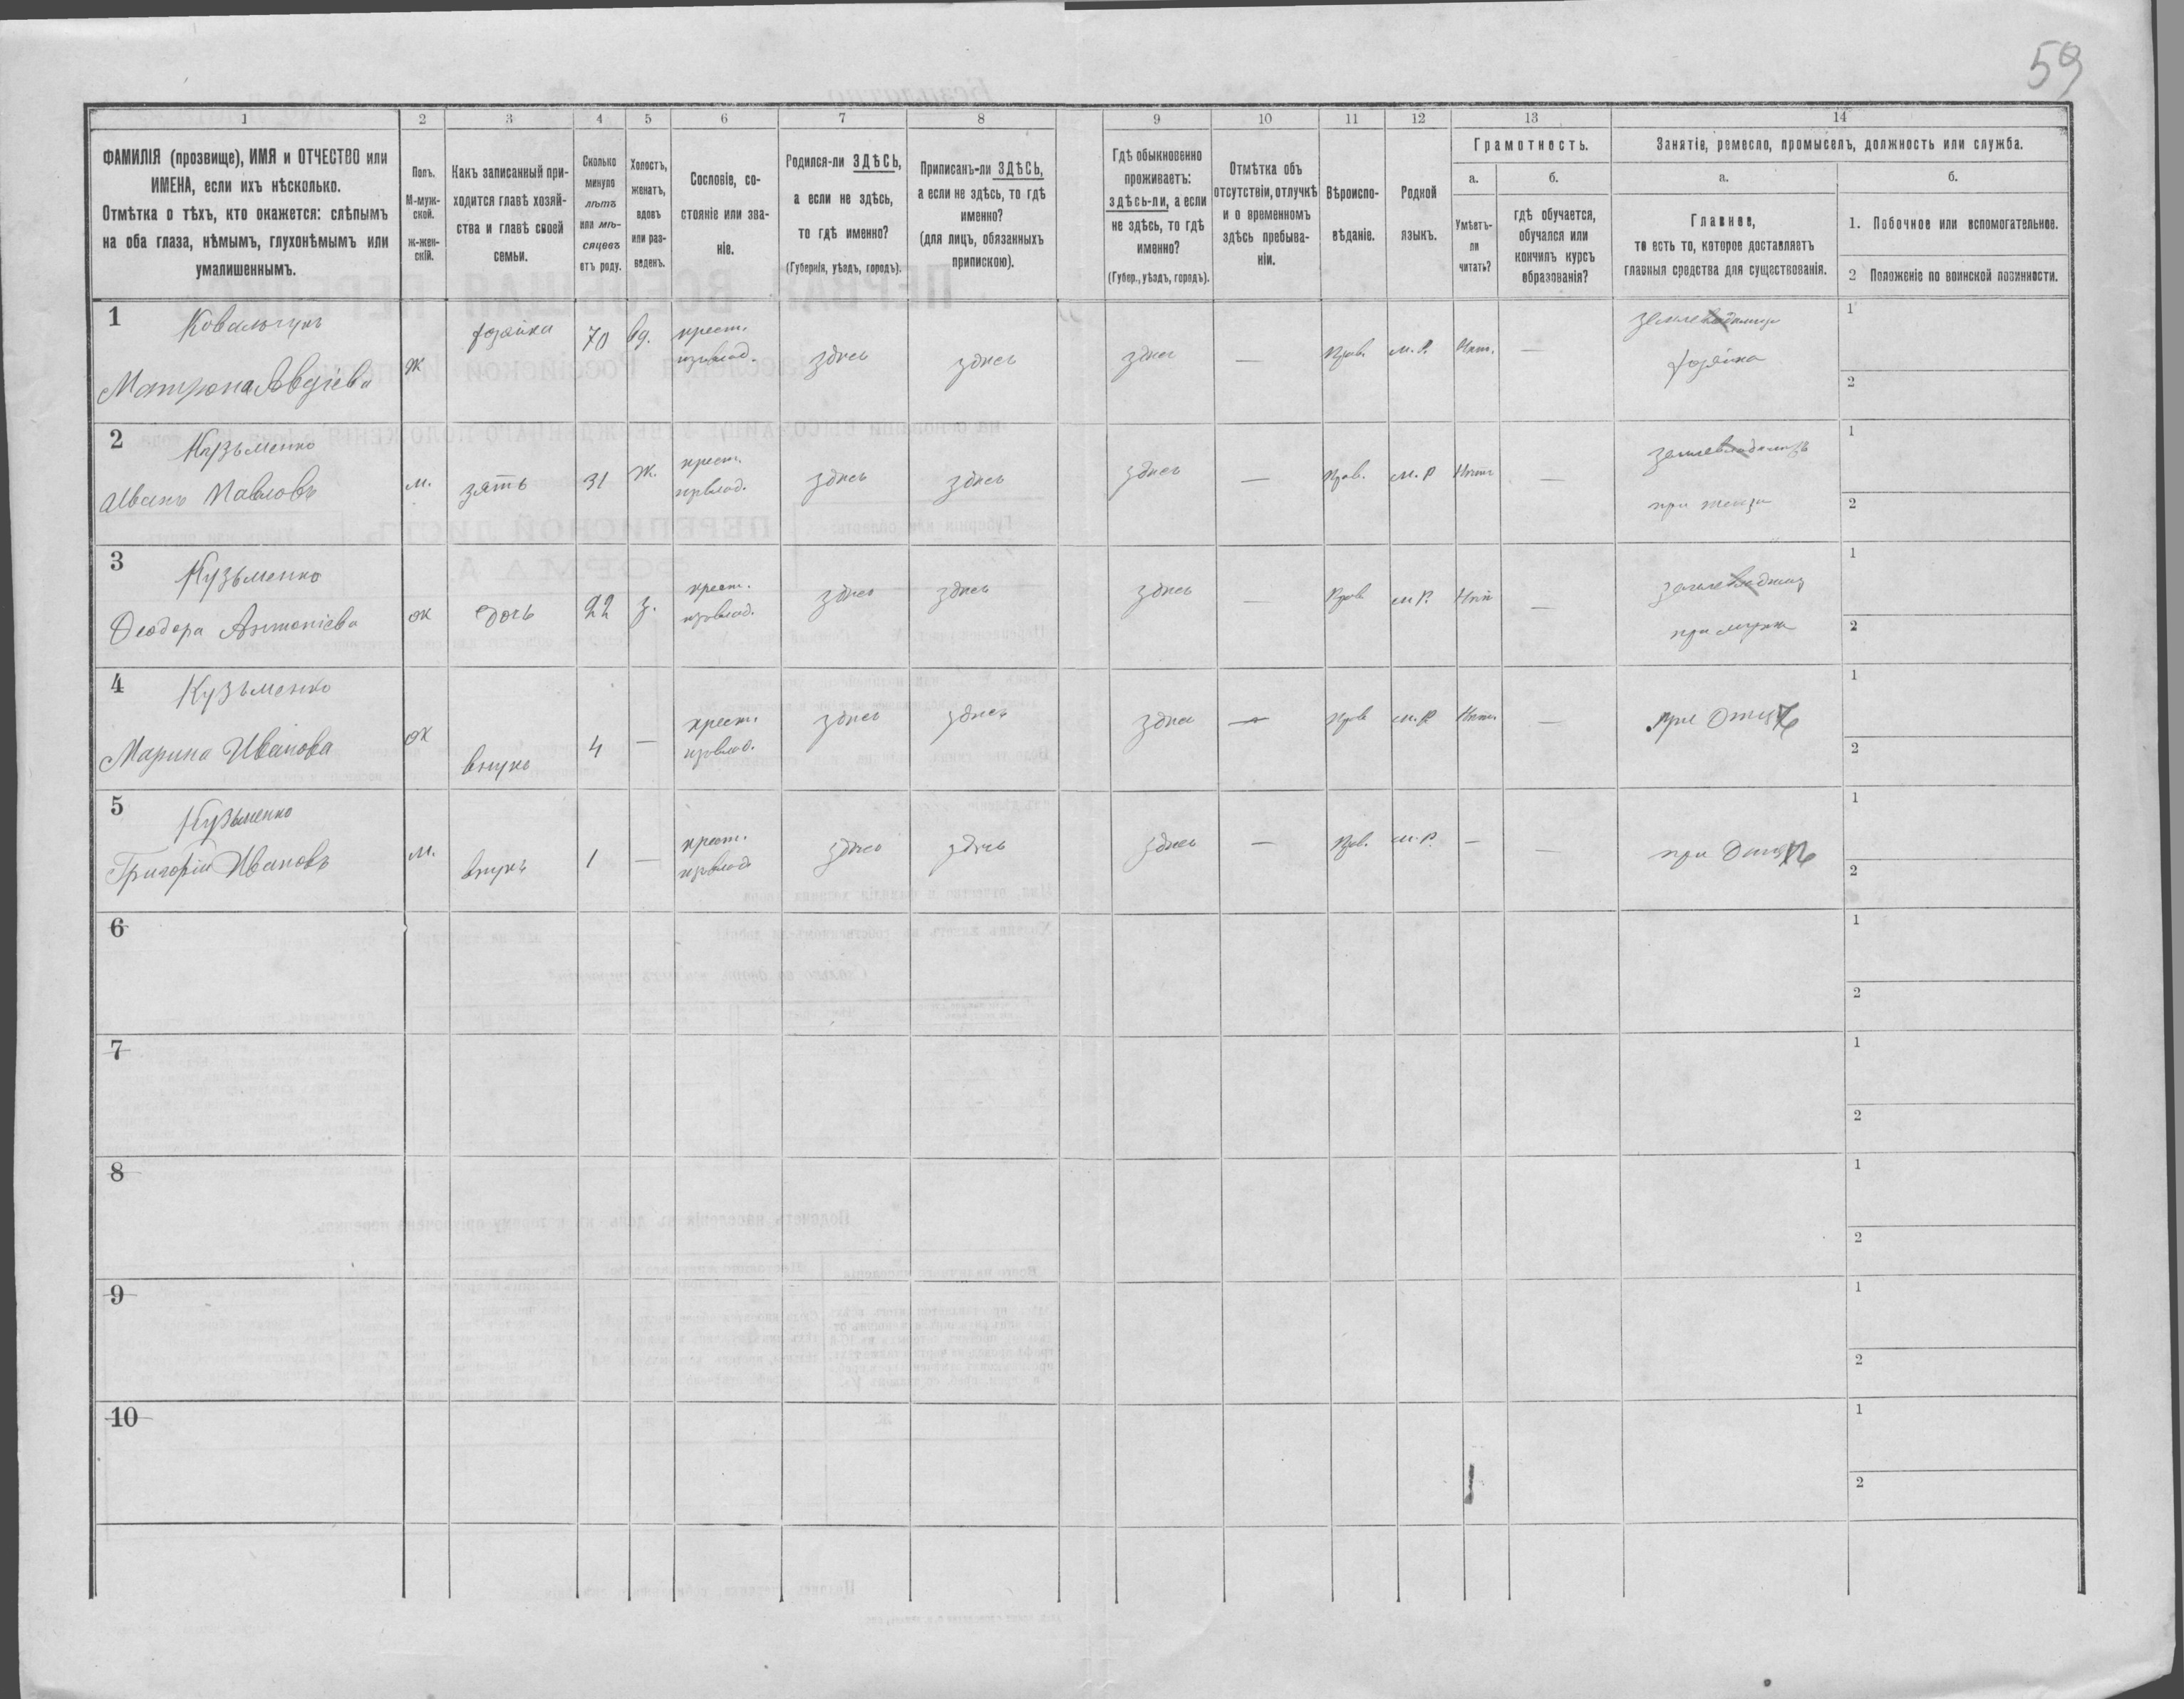 59
1 2 3 4 5 6 7 8 9 10 11 12 13 14
ФАМИЛІЯ (прозвище), ИМЯ и ОТЧЕСТВО или
ИМЕНА, если ихъ нѣсколько.
Отмѣтка о тѣхъ, кто окажется: слѣпымъ
на оба глаза, нѣмымъ, глухонѣмымъ или
умалишеннымъ.
Полъ.
М-муж-
ской.
ж-жен-
скій.
Какъ записанный при-
ходится главѣ хозяй-
ства и главѣ своей
семьи.
Сколько
минуло
лѣтъ
или мѣ-
сяцевъ
отъ роду.
Холостъ,
женатъ,
вдовъ
или раз-
веденъ.
Сословіе, со-
стояніе или зва-
ніе.
Родился-ли ЗДѢСЬ,
а если не здѣсь,
то гдѣ именно?
(Губернія, уѣздъ, городъ).
Приписанъ-ли ЗДѢСЬ,
а если не здѣсь, то гдѣ
именно?
(для лицъ, обязанныхъ
припискою).
Гдѣ обыкновенно
проживаетъ:
здѣсь-ли, а если
не здѣсь, то гдѣ
именно?
(Губер., уѣздъ, городъ).
Отмѣтка объ
отсутствіи, отлучкѣ
и о временномъ
здѣсь пребыва-
ніи.
Вѣроиспо-
вѣданіе.
Родной
языкъ.
Грамотность.
а.
Умѣетъ-
ли
читать?
б.
гдѣ обучается,
обучался или
кончилъ курсъ
образованія?
Занятіе, ремесло, промыселъ, должность или служба.
а.
Главное,
то есть то, которое доставляетъ
главныя средства для существованія.
б.
1. Побочное или вспомогательное.
2 Положеніе по воинской повинности.
1 Ковальчукъ
Матрона Авдіева
Ж
хозяйка
70
вд.
крест.
здѣсь
здѣсь
здѣсь
—
Прав.
м. Р.
Нѣт.
—
хозяйка
1
2
2 Кузьменко
Иванъ Павловъ
м.
зять
31
ж.
крест.
здѣсь
здѣсь
здѣсь
—
Прав.
м. Р
Нѣтъ
—
1
2
3 Кузьменко
Феодора Антоніева
ж
дочь
22
з.
крест.
здѣсь
здѣсь
здѣсь
—
Прав
м Р.
—
при мужѣ
1
2
4 Кузьменко
Марина Иванова
ж
внука
4
—
крест.
здѣсь
здѣсь
здѣсь
—
Прав
м. Р
Нѣт.
—
при Отцѣ
1
2
5 Кузьменко
Григорій Ивановъ
м.
внукъ
1
—
крест.
здѣсь
здѣсь
здѣсь
—
Прав.
м. Р.
—
—
при Отцѣ
1
2
6
1
2
7
1
2
8
1
2
9
1
2
10
1
2